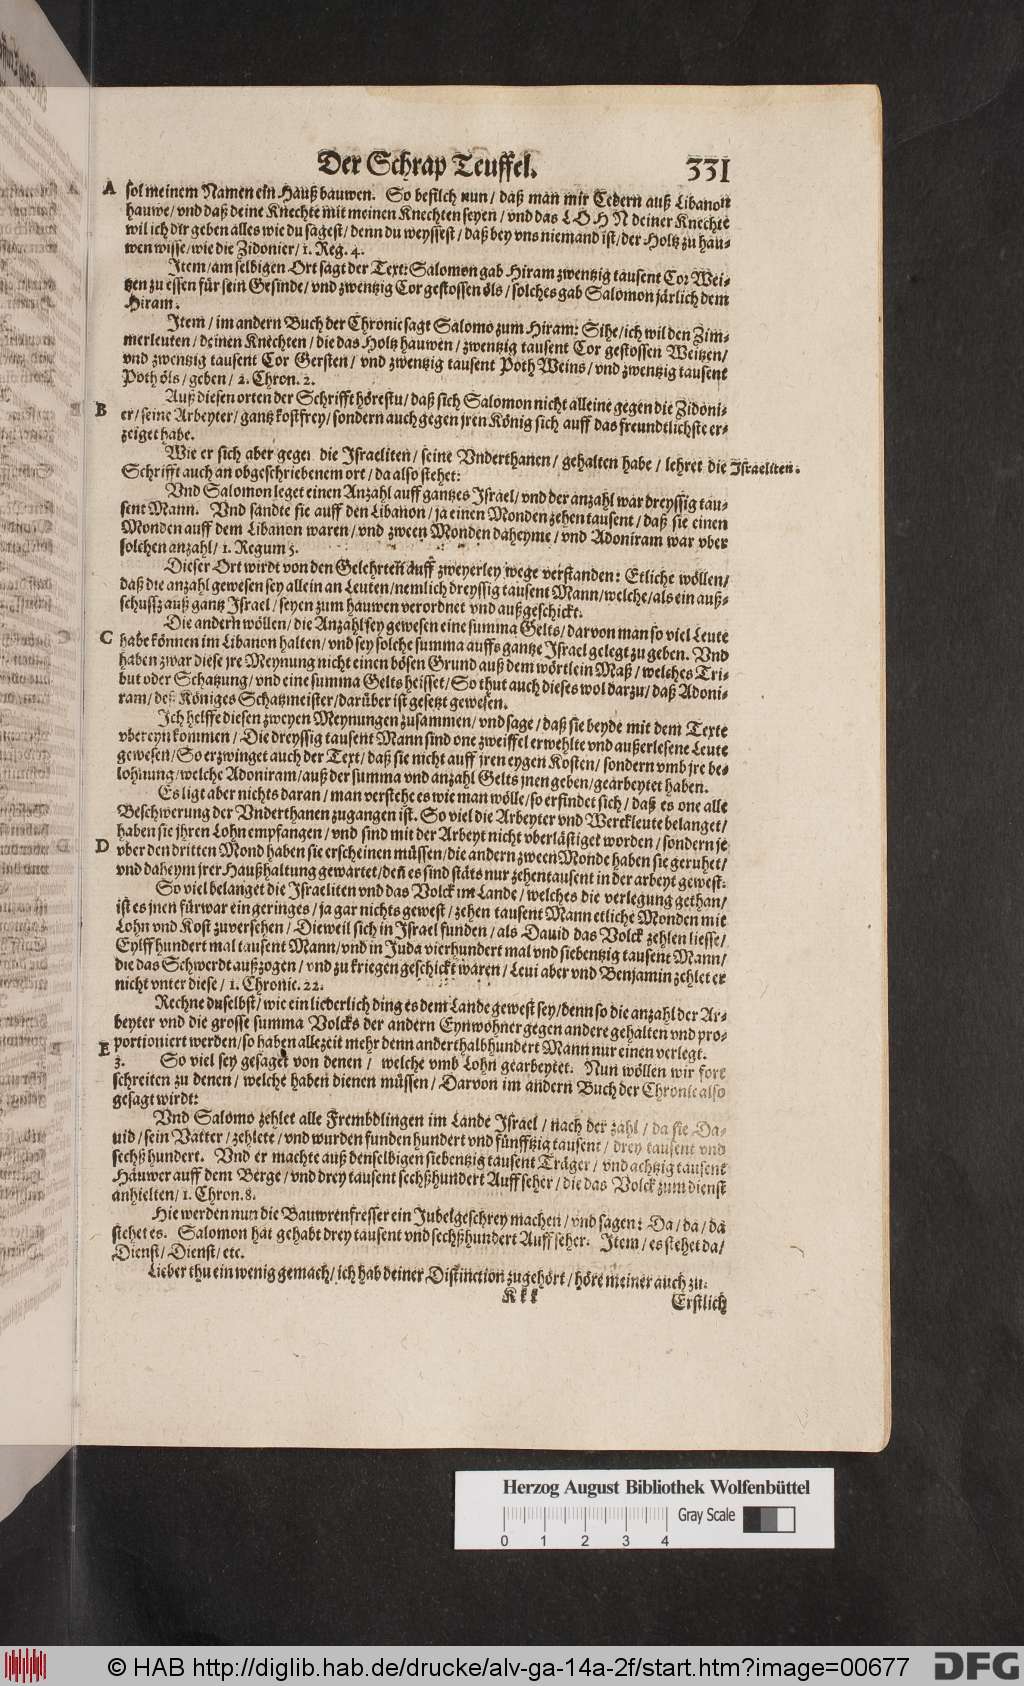 Der Schrap Teuffel. 331
A sol meinem Namen ein Hauß bauwen. So befilch nun / daß man mir Cedern auß Libanon
hauwe / vnd daß deine Knechte mit meinen Knechten seyen / vnd das LOHN deiner Knechte
wil ich dir geben alles wie du sagest / denn du weyssest / daß bey vns niemand ist / der Holtz zu hau-
wen wisse / wie die Zidonier / 1. Reg. 4.
Item / am selbigen Ort sagt der Text: Salomon gab Hiram zwentzig tausent Cor Wei-
tzen zu essen für sein Gesinde / vnd zwentzig Cor gestossen öls / solches gab Salomon järlich dem
Hiram.
Item / im andern Buch der Chronic sagt Salomo zum Hiram: Sihe / ich wil den Zim-
merleuten / deinen Knechten / die das Holtz hauwen / zwentzig tausent Cor gestossen Weitzen /
vnd zwentzig tausent Cor Gersten / vnd zwentzig tausent Poth Weins / vnd zwentzig tausent
Poth öls / geben / 2. Chron. 2.
Auß diesen orten der Schrifft hörestu / daß sich Salomon nicht alleine gegen die Zidoni-
B er / seine Arbeyter / gantz kostfrey / sondern auch gegen jren König sich auff das freundtlichste er-
zeiget habe.
Wie er sich aber gegen die Israeliten / seine Vnderthanen / gehalten habe / lehret die Israeliten.
Schrifft auch an obgeschriebenem ort / da also stehet:
Vnd Salomon leget einen Anzahl auff gantzes Israel / vnd der anzahl war dreyssig tau-
sent Mann. Vnd sandte sie auff den Libanon / ja einen Monden zehen tausent / daß sie einen
Monden auff dem Libanon waren / vnd zween Monden daheyme / vnd Adoniram war vber
solchen anzahl / 1. Regum 5.
Dieser Ort wirdt von den Gelehrten auff zweyerley wege verstanden: Etliche wöllen /
daß die anzahl gewesen sey allein an Leuten / nemlich dreyssig tausent Mann / welche / als ein auß-
schussz auß gantz Israel / seyen zum hauwen verordnet vnd außgeschickt.
Die andern wöllen / die Anzahl sey gewesen eine summa Gelts / darvon man so viel Leute
C habe können im Libanon halten / vnd sey solche summa auffs gantze Israel gelegt zu geben. Vnd
haben zwar diese jre Meynung nicht einen bösen Grund auß dem wörtlein Maß / welches Tri-
but oder Schatzung / vnd eine summa Gelts heisset / So thut auch dieses wol darzu / daß Adoni-
ram / deß Königes Schatzmeister / darüber ist gesetzt gewesen.
Ich helffe diesen zweyen Meynungen zusammen / vnd sage / daß sie beyde mit dem Texte
vbereyn kommen / Die dreyssig tausent Mann sind one zweiffel erwehlte vnd außerlesene Leute
gewesen / So erzwinget auch der Text / daß sie nicht auff jren eygen Kosten / sondern vmb jre be-
lohnung / welche Adoniram / auß der summa vnd anzahl Gelts jnen geben / gearbeytet haben.
Es ligt aber nichts daran / man verstehe es wie man wölle / so erfindet sich / daß es one alle
Beschwerung der Vnderthanen zugangen ist. So viel die Arbeyter vnd Werckleute belanget /
haben sie jhren Lohn empfangen / vnd sind mit der Arbeyt nicht vberlästiget worden / sondern je
D vber den dritten Mond haben sie erscheinen müssen / die andern zween Monde haben sie geruhet /
vnd daheym jrer Haußhaltung gewartet / deñ es sind stäts nur zehen tausent in der arbeyt gewest.
So viel belanget die Israeliten vnd das Volck im Lande / welches die verlegung gethan /
ist es jnen fürwar ein geringes / ja gar nichts gewest / zehen tausent Mann etliche Monden mit
Lohn vnd Kost zuversehen / Dieweil sich in Israel funden / als Dauid das Volck zehlen liesse /
Eylff hundert mal tausent Mann / vnd in Juda vierhundert mal vnd siebentzig tausent Mann /
die das Schwerdt außzogen / vnd zu kriegen geschickt waren / Leui aber vnd Benjamin zehlet er
nicht vnter diese / 1. Chronic. 22.
Rechne du selbst / wie ein liederlich ding es dem Lande gewest sey / denn so die anzahl der Ar-
beyter vnd die grosse summa Volcks der andern Eynwohner gegen andere gehalten vnd pro-
E portioniert werden / so haben allezeit mehr denn anderthalbhundert Mann nur einen verlegt.
3. So viel sey gesaget von denen / welche vmb Lohn gearbeytet. Nun wöllen wir fort
schreiten zu denen / welche haben dienen müssen / Darvon im andern Buch der Chronic also
gesagt wirdt:
Vnd Salomo zehlet alle Frembdlingen im Lande Israel / nach der zahl / da sie Da-
uid / sein Vatter / zehlete / vnd wurden funden hundert vnd fünfftzig tausent / drey tausent vnd
sechß hundert. Vnd er machte auß denselbigen siebentzig tausent Träger / vnd achtzig tausent
Häuwer auff dem Berge / vnd drey tausent sechßhundert Auffseher / die das Volck zum dienst
anhielten / 1. Chron. 8.
Hie werden nun die Bauwrenfresser ein Jubelgeschrey machen / vnd sagen: Da / da / da
stehet es. Salomon hat gehabt drey tausent vnd sechßhundert Auffseher. Item / es stehet da /
Dienst / Dienst / etc.
Lieber thu ein wenig gemach / ich hab deiner Distinction zugehört / höre meiner auch zu.
Kkk Erstlich
Herzog August Bibliothek Wolfenbüttel
Gray Scale
0 1 2 3 4
© HAB http://diglib.hab.de/drucke/alv-ga-14a-2f/start.htm?image=00677 DFG